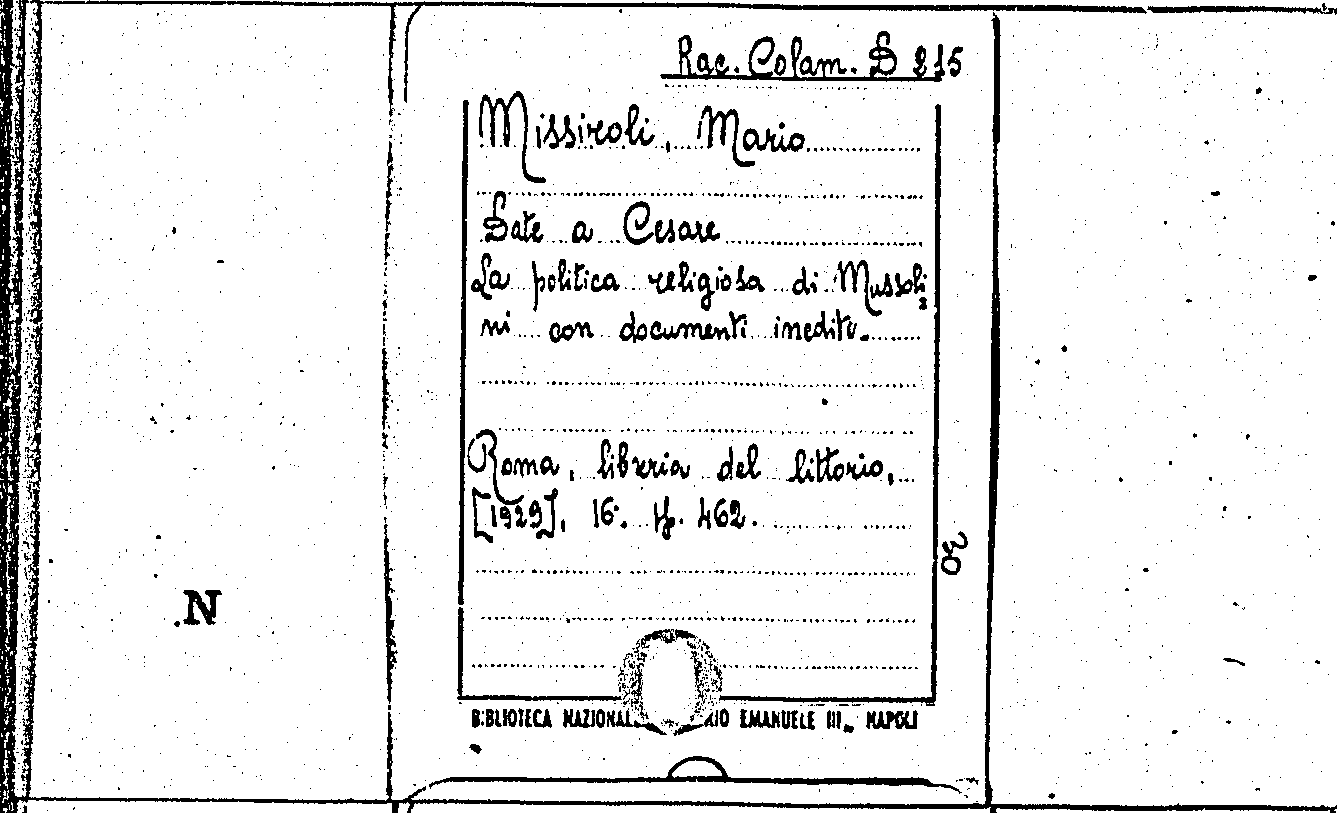 Rac. Colam. D 215
Missiroli, Mario
Date a Cesare
La politica religiosa di Mussoli=
ni con documenti inediti.
Roma, libreria del littorio,
[1929], 16°. pp. 462.
N
BIBLIOTECA NAZIONALE EMANUELE III - NAPOLI